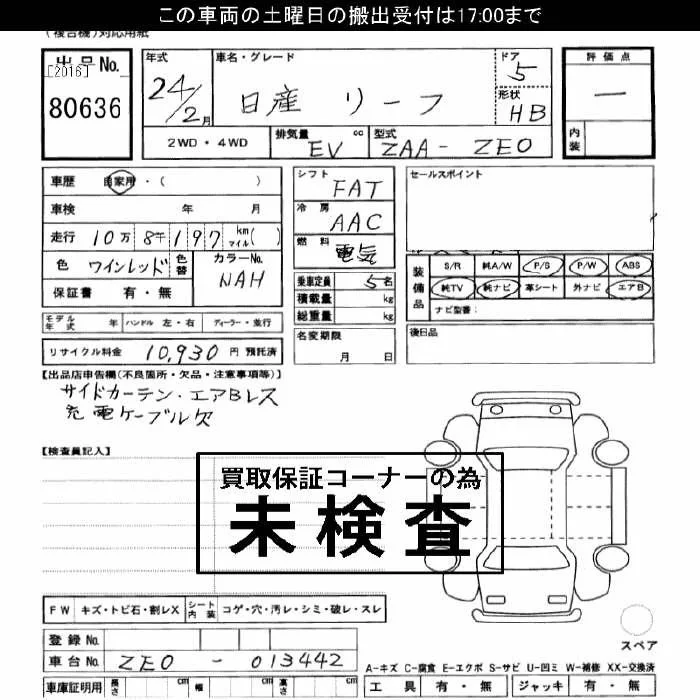 この車両の土曜日の搬出受付は17:00まで
(複合機)対応用紙
出品No.
[2016]
80636
年式
24/2月
車名・グレード
日産 リーフ
ドア
5
形状
HB
評価点
―
内装
2WD・4WD
排気量 cc
EV
型式
ZAA-ZE0
車歴 自家用・( )
車検 年 月
走行 10万8千197 km マイル( )
色 ワインレッド 色替 カラーNo. NAH
保証書 有・無
シフト FAT
冷房 AAC
燃料 電気
乗車定員 5名
積載量 kg
総重量 kg
セールスポイント
装備品
S/R 純A/W P/S P/W ABS
純TV 純ナビ 革シート 外ナビ エアB
ナビ型番:
モデル年式 年 ハンドル 左・右 ディーラー・並行
名変期限
月 日
後日品
リサイクル料金 10,930 円 預託済
【出品店申告欄(不良箇所・欠品・注意事項等)】
サイドカーテン・エアBレス
充電ケーブル欠
【検査員記入】
買取保証コーナーの為
未検査
FW キズ・トビ石・割レX シート内装 コゲ・穴・汚レ・シミ・破レ・スレ
登録No.
車台No. ZE0-013442
スペア
A-キズ C-腐食 E-エクボ S-サビ U-凹ミ W-補修 XX-交換済
車庫証明用 長さ cm 幅 cm 高さ cm
工具 有・無 ジャッキ 有・無